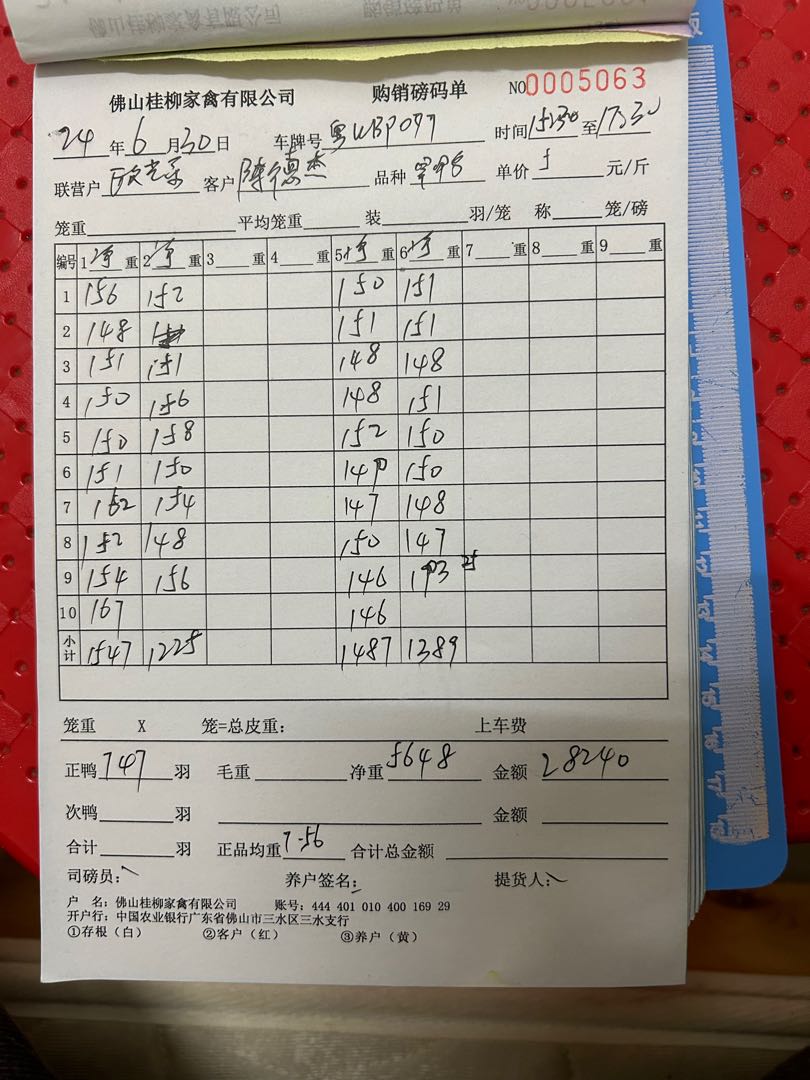 佛山桂柳家禽有限公司 购销磅码单 NO0005063
24年6月30日 车牌号 时间15:30至17:30
联营户 客户陈德杰 品种 单价5元/斤
笼重 平均笼重 装 羽/笼 称 笼/磅
编号 1净重 2净重 3 重 4 重 5净重 6净重 7 重 8 重 9 重
1 156 152 150 151
2 148 151 151
3 151 151 148 148
4 150 156 148 151
5 150 158 152 150
6 151 150 150
7 152 154 147 148
8 152 148 150 147
9 154 156 146 193 25
10 167 146
小计 1547 1225 1487 1389
笼重 X 笼=总皮重： 上车费
正鸭747羽 毛重 净重5648 金额28240
次鸭 羽 金额
合计 羽 正品均重7.56 合计总金额
司磅员： 养户签名： 提货人：
户 名：佛山桂柳家禽有限公司 账号：444 401 010 400 169 29
开户行：中国农业银行广东省佛山市三水区三水支行
①存根（白） ②客户（红） ③养户（黄）